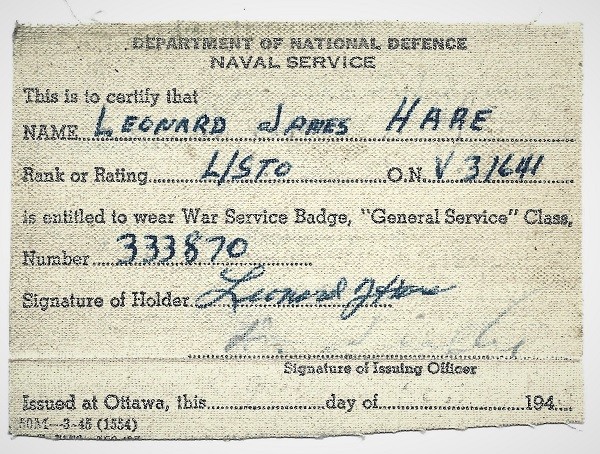 DEPARTMENT OF NATIONAL DEFENCE
NAVAL SERVICE
This is to certify that
NAME LEONARD JAMES HARE
Rank or Rating L/STO O.N. V 31641
is entitled to wear War Service Badge, "General Service" Class,
Number 333870
Signature of Holder Leonard J Hare
Signature of Issuing Officer
Issued at Ottawa, this day of 194
50M—3-45 (1554)